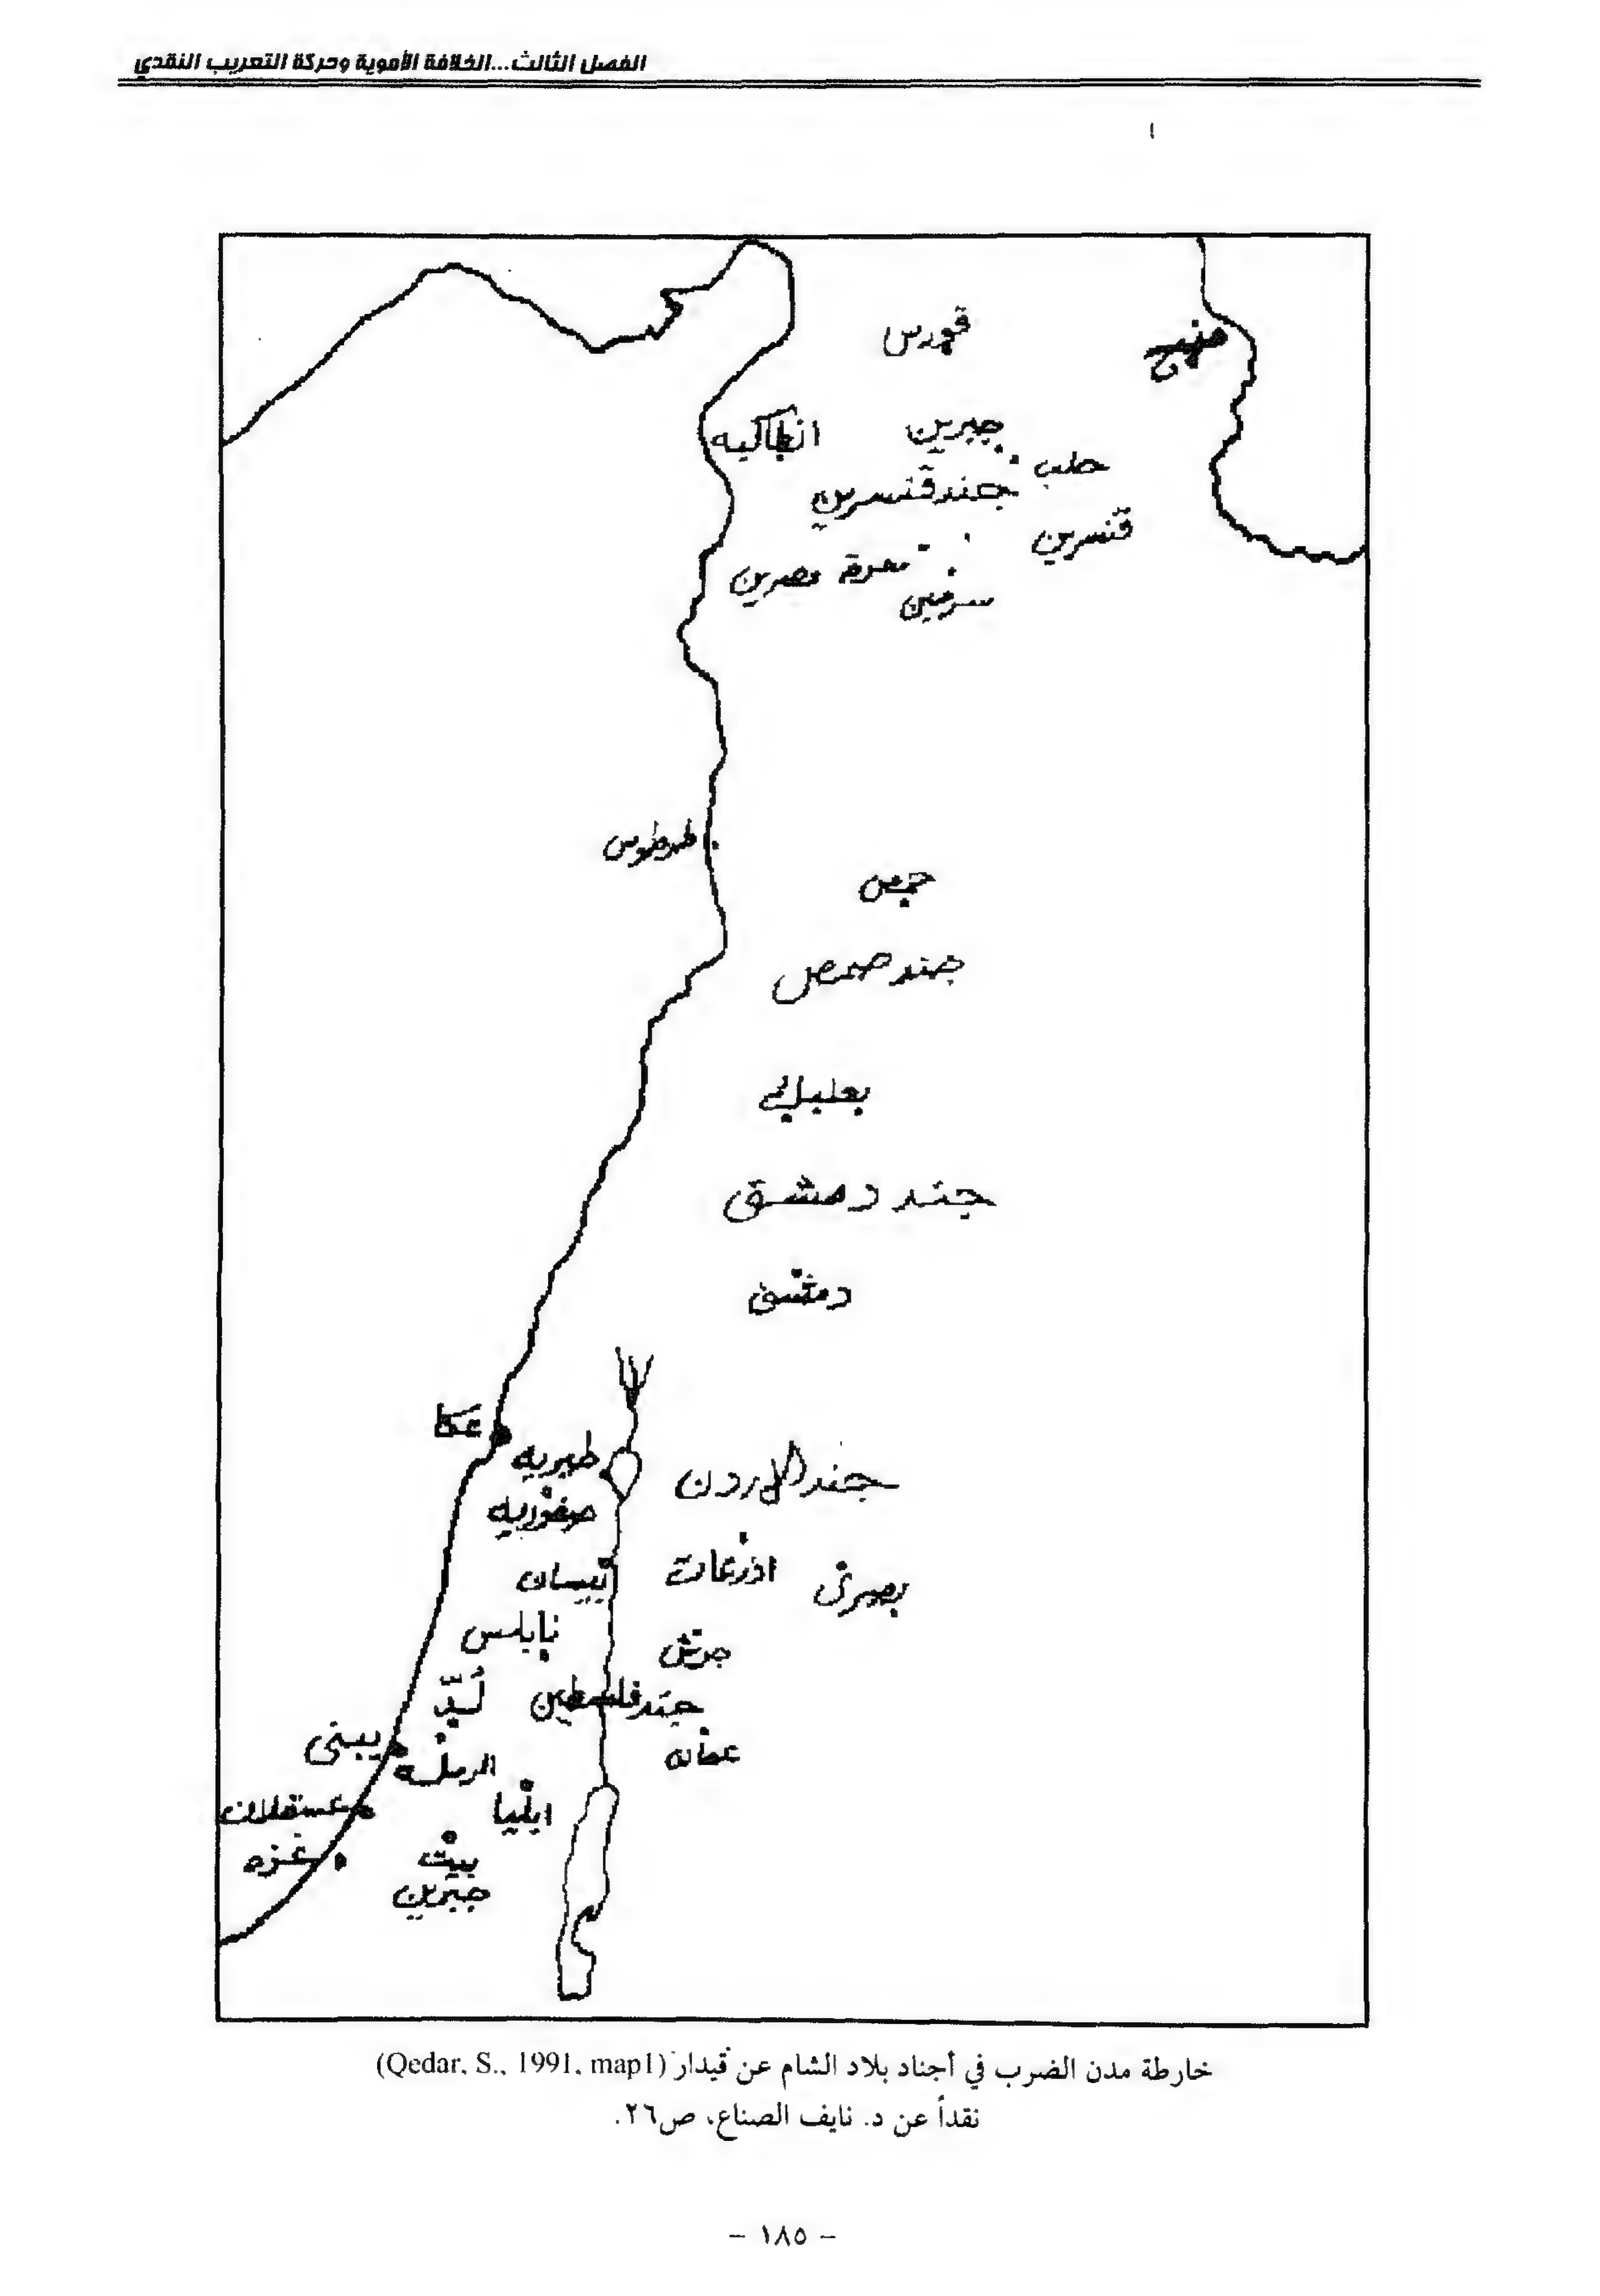 الفصل الثالث...الخلافة الأموية وحركة التعريب النقدي
قورس
منبج
انطاكيه
جبرين
حلب
جند قنسرين
قنسرين
معرة مصرين
سرمين
طرطوس
حمص
جند حمص
بعلبك
جند دمشق
دمشق
عكا
طبريه
جند الاردن
صفوريه
بيسان
اذرعات
بصرى
نابلس
جرش
لُدّ
جند فلسطين
يبنى
الرملة
عمان
عسقلان
ايليا
غزه
بيت
جبرين
خارطة مدن الضرب في أجناد بلاد الشام عن قيدار (Qedar, S., 1991, map1)
نقداً عن د. نايف الصناع، ص٢٦.
- ١٨٥ -